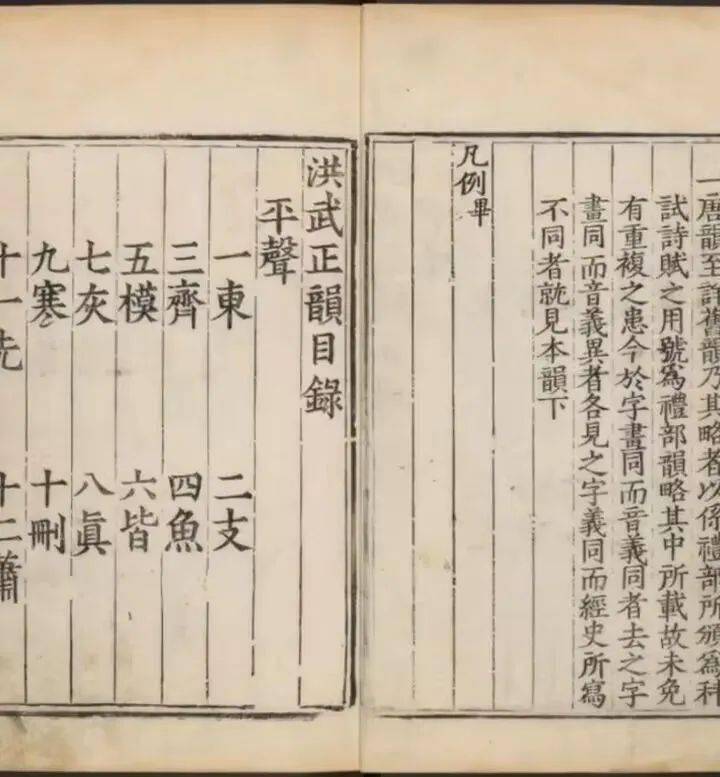 一唐韻至詳舊韻乃其略者以係禮部所頒爲科
試詩賦之用號爲禮部韻略其中所載故未免
有重複之患今於字畫同而音義同者去之字
畫同而音義異者各見之字義同而經史所寫
不同者就見本韻下
凡例畢
洪武正韻目錄
平聲
一東 二支
三齊 四魚
五模 六皆
七灰 八眞
九寒 十刪
十一先 十二蕭